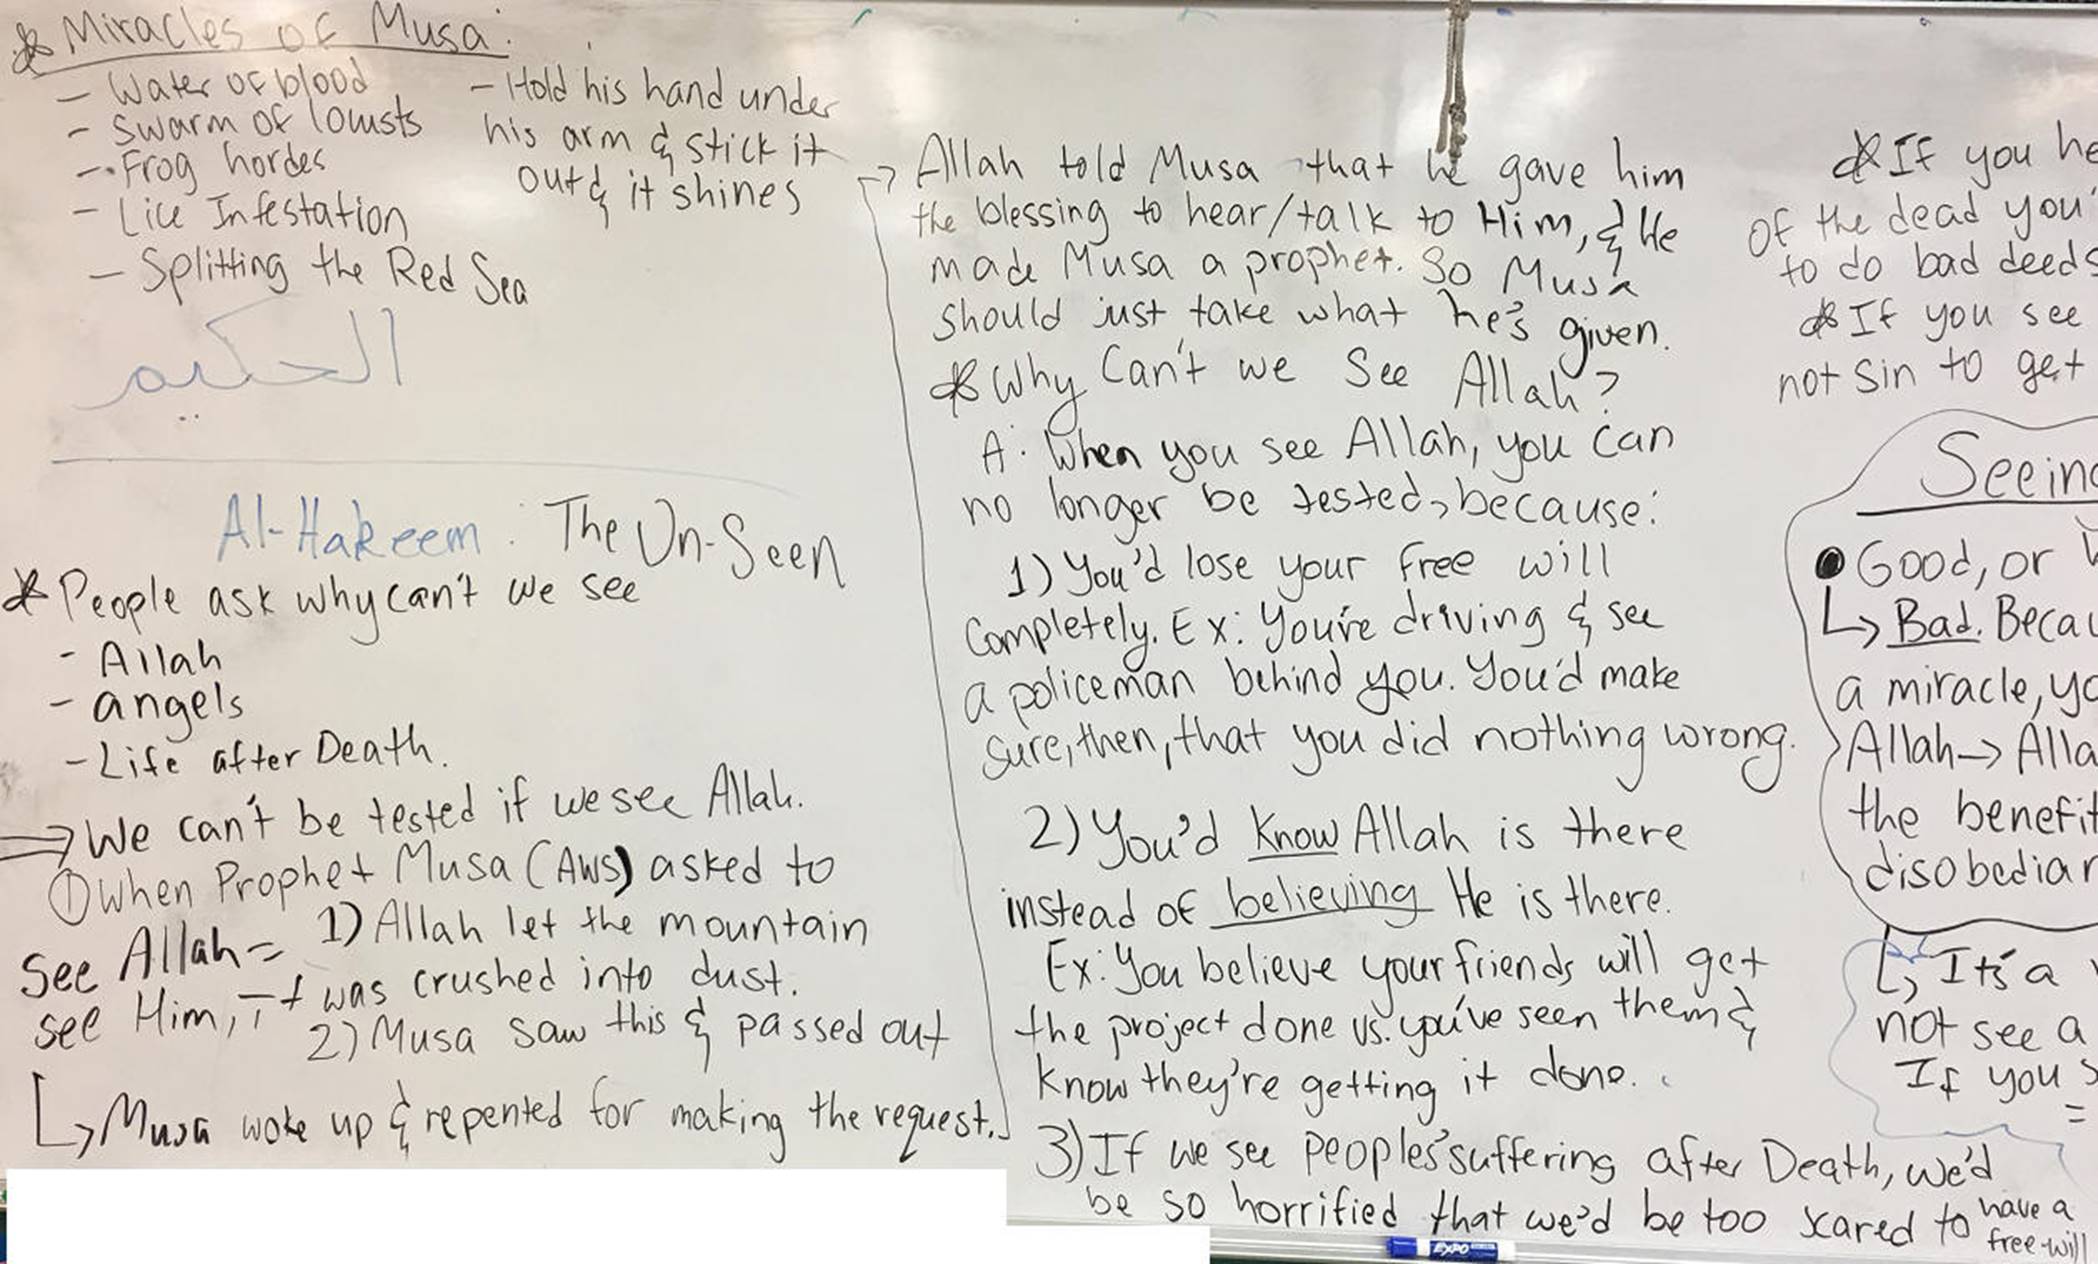 * Miracles of Musa:
- Water of blood
- Swarm of locusts
- Frog hordes
- Lice Infestation
- Splitting the Red Sea
- Hold his hand under
his arm & stick it
out & it shines
الحكيم
Al-Hakeem: The Un-Seen
* People ask why can't we see
- Allah
- angels
- Life after Death.
⇒ We can't be tested if we see Allah.
① When Prophet Musa (AWS) asked to
see Allah = 1) Allah let the mountain
see Him, It was crushed into dust.
2) Musa saw this & passed out
↳ Musa woke up & repented for making the request.
→ Allah told Musa that he gave him
the blessing to hear/talk to Him, & He
made Musa a prophet. So Musa
should just take what he's given.
* Why Can't we See Allah?
A: When you see Allah, you can
no longer be tested, because:
1) You'd lose your free will
completely. Ex: You're driving & see
a policeman behind you. You'd make
sure, then, that you did nothing wrong.
2) You'd know Allah is there
instead of believing He is there.
Ex: You believe your friends will get
the project done vs. you've seen them &
know they're getting it done.
3) If we see peoples' suffering after Death, we'd
be so horrified that we'd be too scared to have a
free-will
* If you he
of the dead you
to do bad deeds
* If you see
not sin to get
Seeing
• Good, or
↳ Bad. Becau
a miracle, yo
Allah → Alla
the benefit
disobedian
↳ It's a
not see a
If you s
=
EXPO